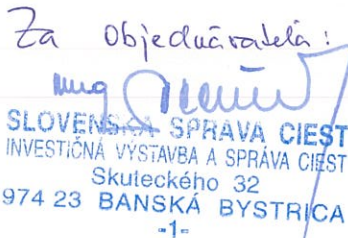 Za Objednávateľa:
Ing
SLOVENSKÁ SPRÁVA CIEST
INVESTIČNÁ VÝSTAVBA A SPRÁVA CIEST
Skuteckého 32
974 23 BANSKÁ BYSTRICA
-1-